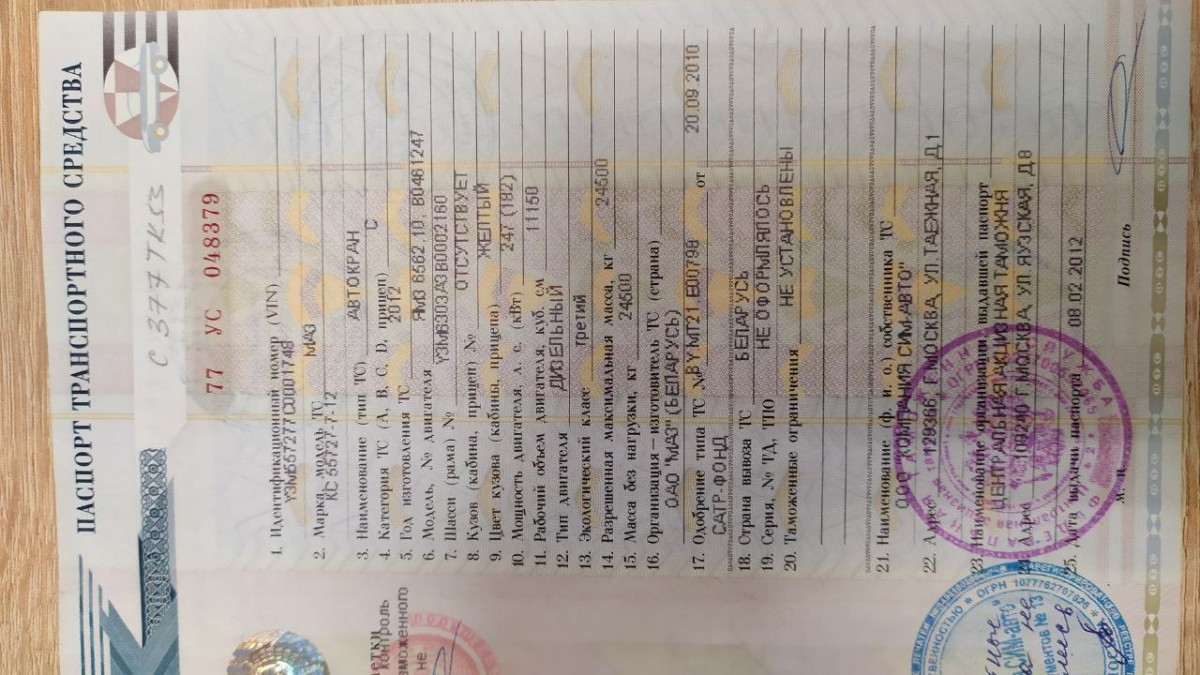 ПАСПОРТ ТРАНСПОРТНОГО СРЕДСТВА
С 377 ТК 53
77 УС 048379
1. Идентификационный номер (VIN)
УЗМ655727С0001748
2. Марка, модель ТС МАЗ
КС 55727-7-12
3. Наименование (тип ТС) АВТОКРАН
4. Категория ТС (A, B, C, D, прицеп) С
5. Год изготовления ТС 2012
6. Модель, № двигателя ЯМЗ 6562.10, В0461247
7. Шасси (рама) № УЗМ6303АЗВ0002160
8. Кузов (кабина, прицеп) № ОТСУТСТВУЕТ
9. Цвет кузова (кабины, прицепа) ЖЕЛТЫЙ
10. Мощность двигателя, л. с. (кВт) 247 (182)
11. Рабочий объем двигателя, куб. см 11150
12. Тип двигателя ДИЗЕЛЬНЫЙ
13. Экологический класс третий
14. Разрешенная максимальная масса, кг 24500
15. Масса без нагрузки, кг 24500
16. Организация – изготовитель ТС (страна)
ОАО "МАЗ" (БЕЛАРУСЬ)
17. Одобрение типа ТС № BY.МТ21.Е00798 от 20.09.2010
САТР-ФОНД
18. Страна вывоза ТС БЕЛАРУСЬ
19. Серия, № ТД, ТПО НЕ ОФОРМЛЯЛОСЬ
20. Таможенные ограничения НЕ УСТАНОВЛЕНЫ
21. Наименование (ф. и. о.) собственника ТС
ООО "КОМПАНИЯ СИМ.АВТО"
22. Адрес 129366, Г.МОСКВА, УЛ.ТАЕЖНАЯ, Д.1
23. Наименование организации, выдавшей паспорт
ЦЕНТРАЛЬНАЯ АКЦИЗНАЯ ТАМОЖНЯ
24. Адрес 109240 Г.МОСКВА, УЛ. ЯУЗСКАЯ, Д.8
25. Дата выдачи паспорта 08.02.2012
М. П. Подпись
етки
контроль
аможенного
не
ОГРН 1077762707626
ВЕТСТВЕННОСТЬЮ
СИМ-авто
ументов № 13